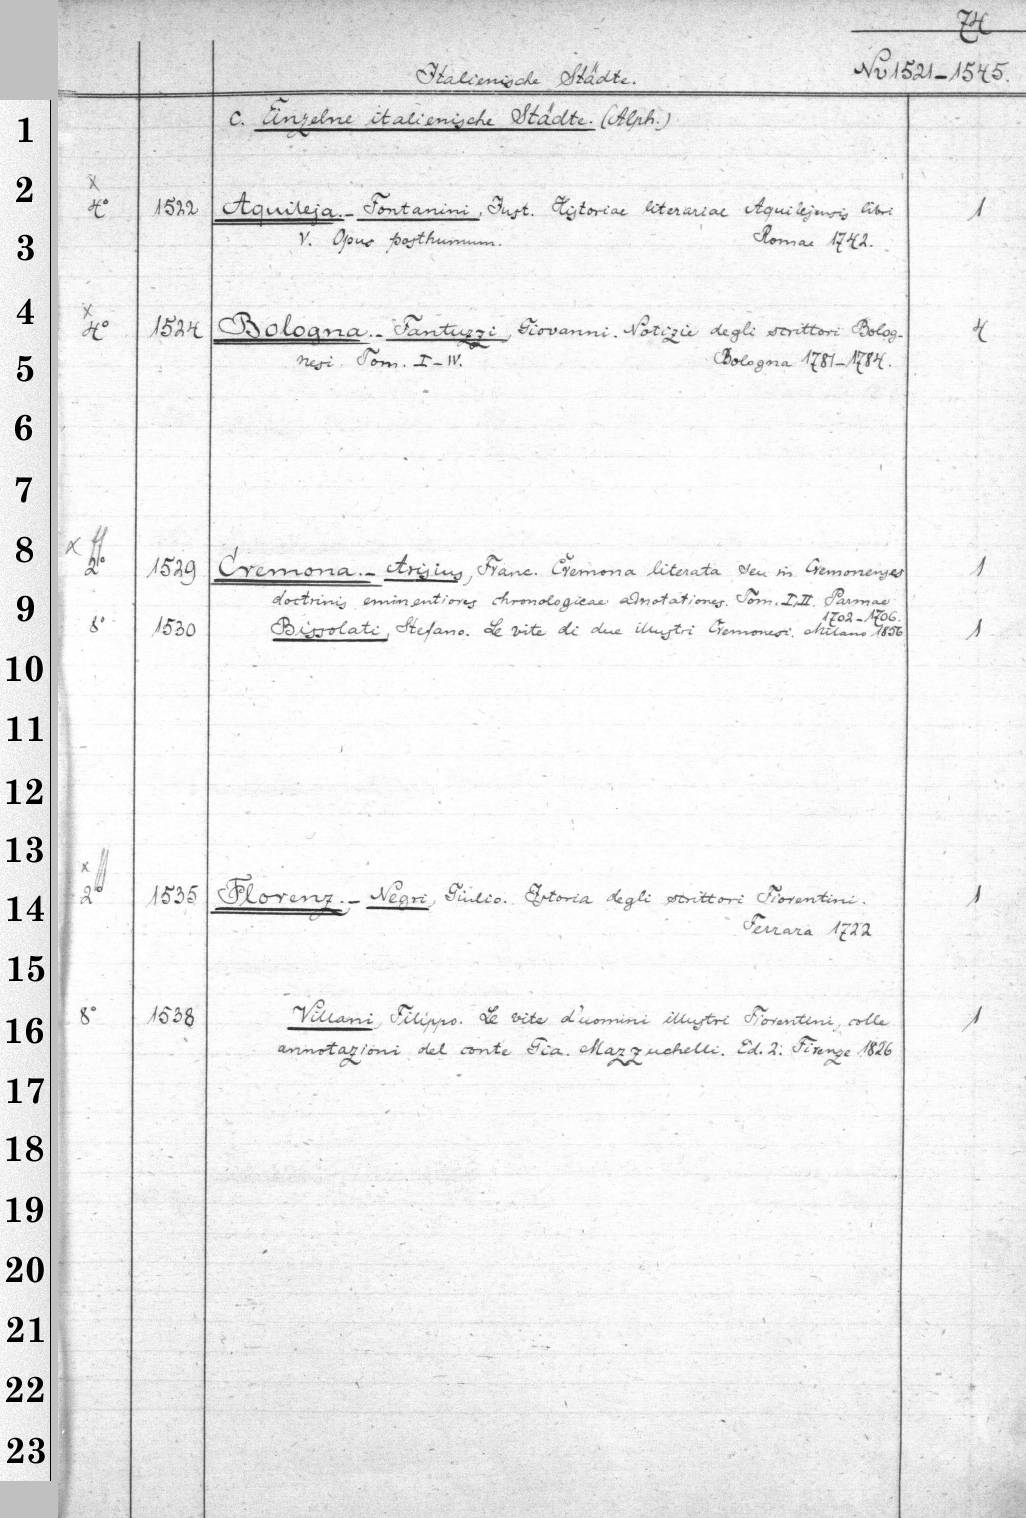 74
Italienische Städte.
No 1521-1545.
1
c. Einzelne italienische Städte. (Alph.)
2
x
4° 1522 Aquileja. - Fontanini, Just. Historiae literariae Aquilejensis libri 1
3
V. Opus posthumum. Romae 1742.
4
x
4° 1524 Bologna. - Fantuzzi, Giovanni. Notizie degli scrittori Bolog- 4
5
nesi. Tom. I-IV. Bologna 1781-1784.
6
7
8
x ff
2° 1529 Cremona. - Arisius, Franc. Cremona literata seu in Cremonenses 1
9
doctrinis eminentiores chronologicae adnotationes. Tom. I, II. Parmae
1702-1706.
8° 1530 Bissolati, Stefano. Le vite di due illustri Cremonesi. Milano 1856 1
10
11
12
13
x ff
2° 1535 Florenz. - Negri, Giulio. Istoria degli scrittori Fiorentini. 1
14
Ferrara 1722
15
8° 1538 Villani, Filippo. Le vite d'uomini illustri Fiorentini, colle 1
16
annotazioni del conte Gia. Mazzuchelli. Ed. 2. Firenze 1826
17
18
19
20
21
22
23